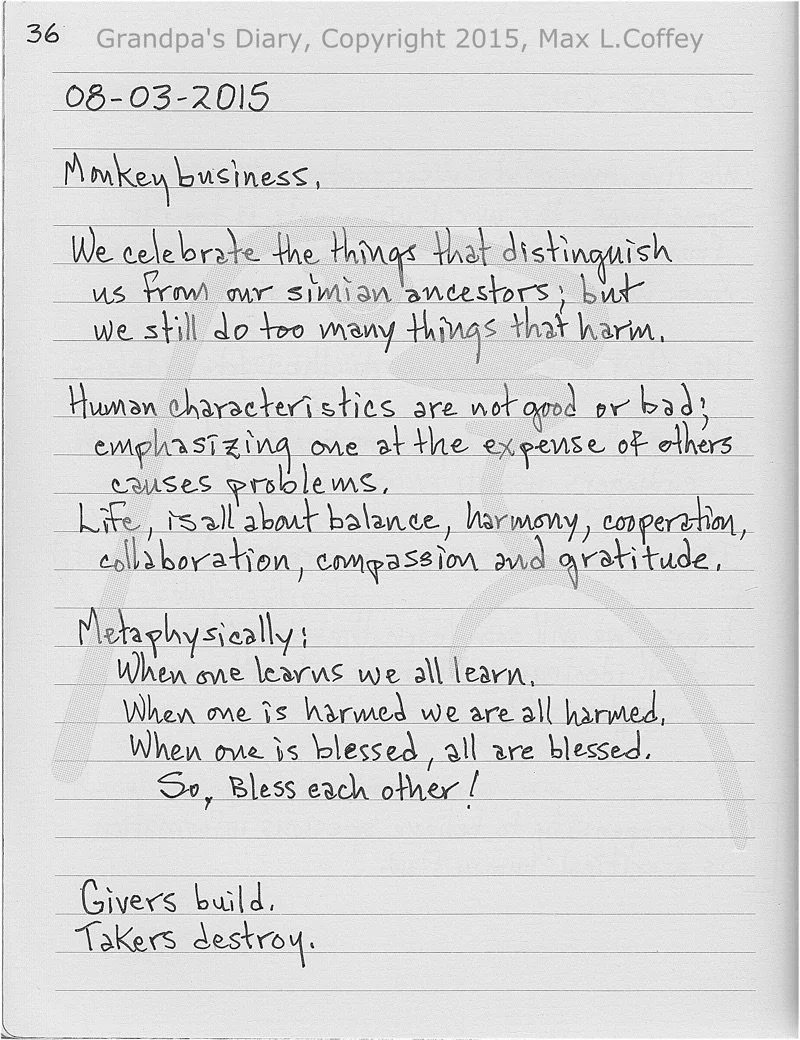 36
Grandpa's Diary, Copyright 2015, Max L.Coffey
08-03-2015
Monkey business.
We celebrate the things that distinguish
us from our simian ancestors; but
we still do too many things that harm.
Human characteristics are not good or bad;
emphasizing one at the expense of others
causes problems.
Life, is all about balance, harmony, cooperation,
collaboration, compassion and gratitude.
Metaphysically:
When one learns we all learn.
When one is harmed we are all harmed.
When one is blessed, all are blessed.
So, Bless each other!
Givers build.
Takers destroy.